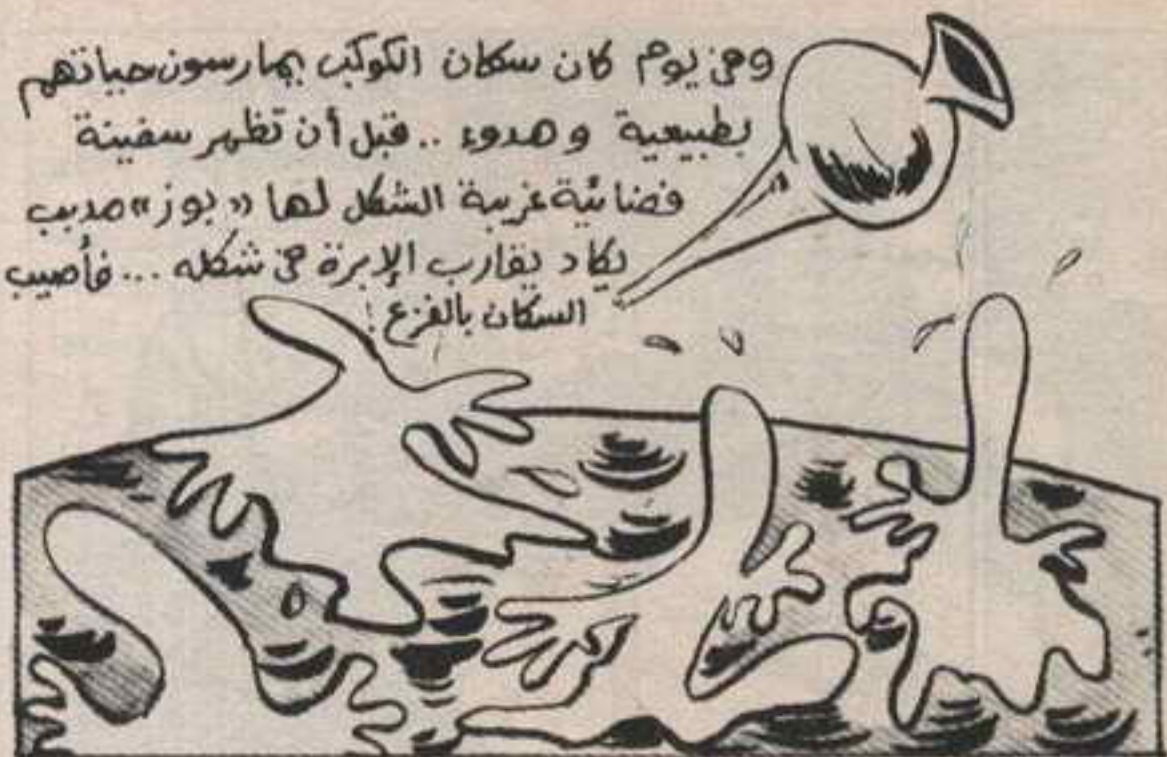 وفي يوم كان سكان الكوكب يمارسون حياتهم
بطبيعية وهدوء .. قبل أن تظهر سفينة
فضائية غريبة الشكل لها «بوز» مدبب
يكاد يقارب الإبرة في شكله ... فأصيب
السكان بالفزع !